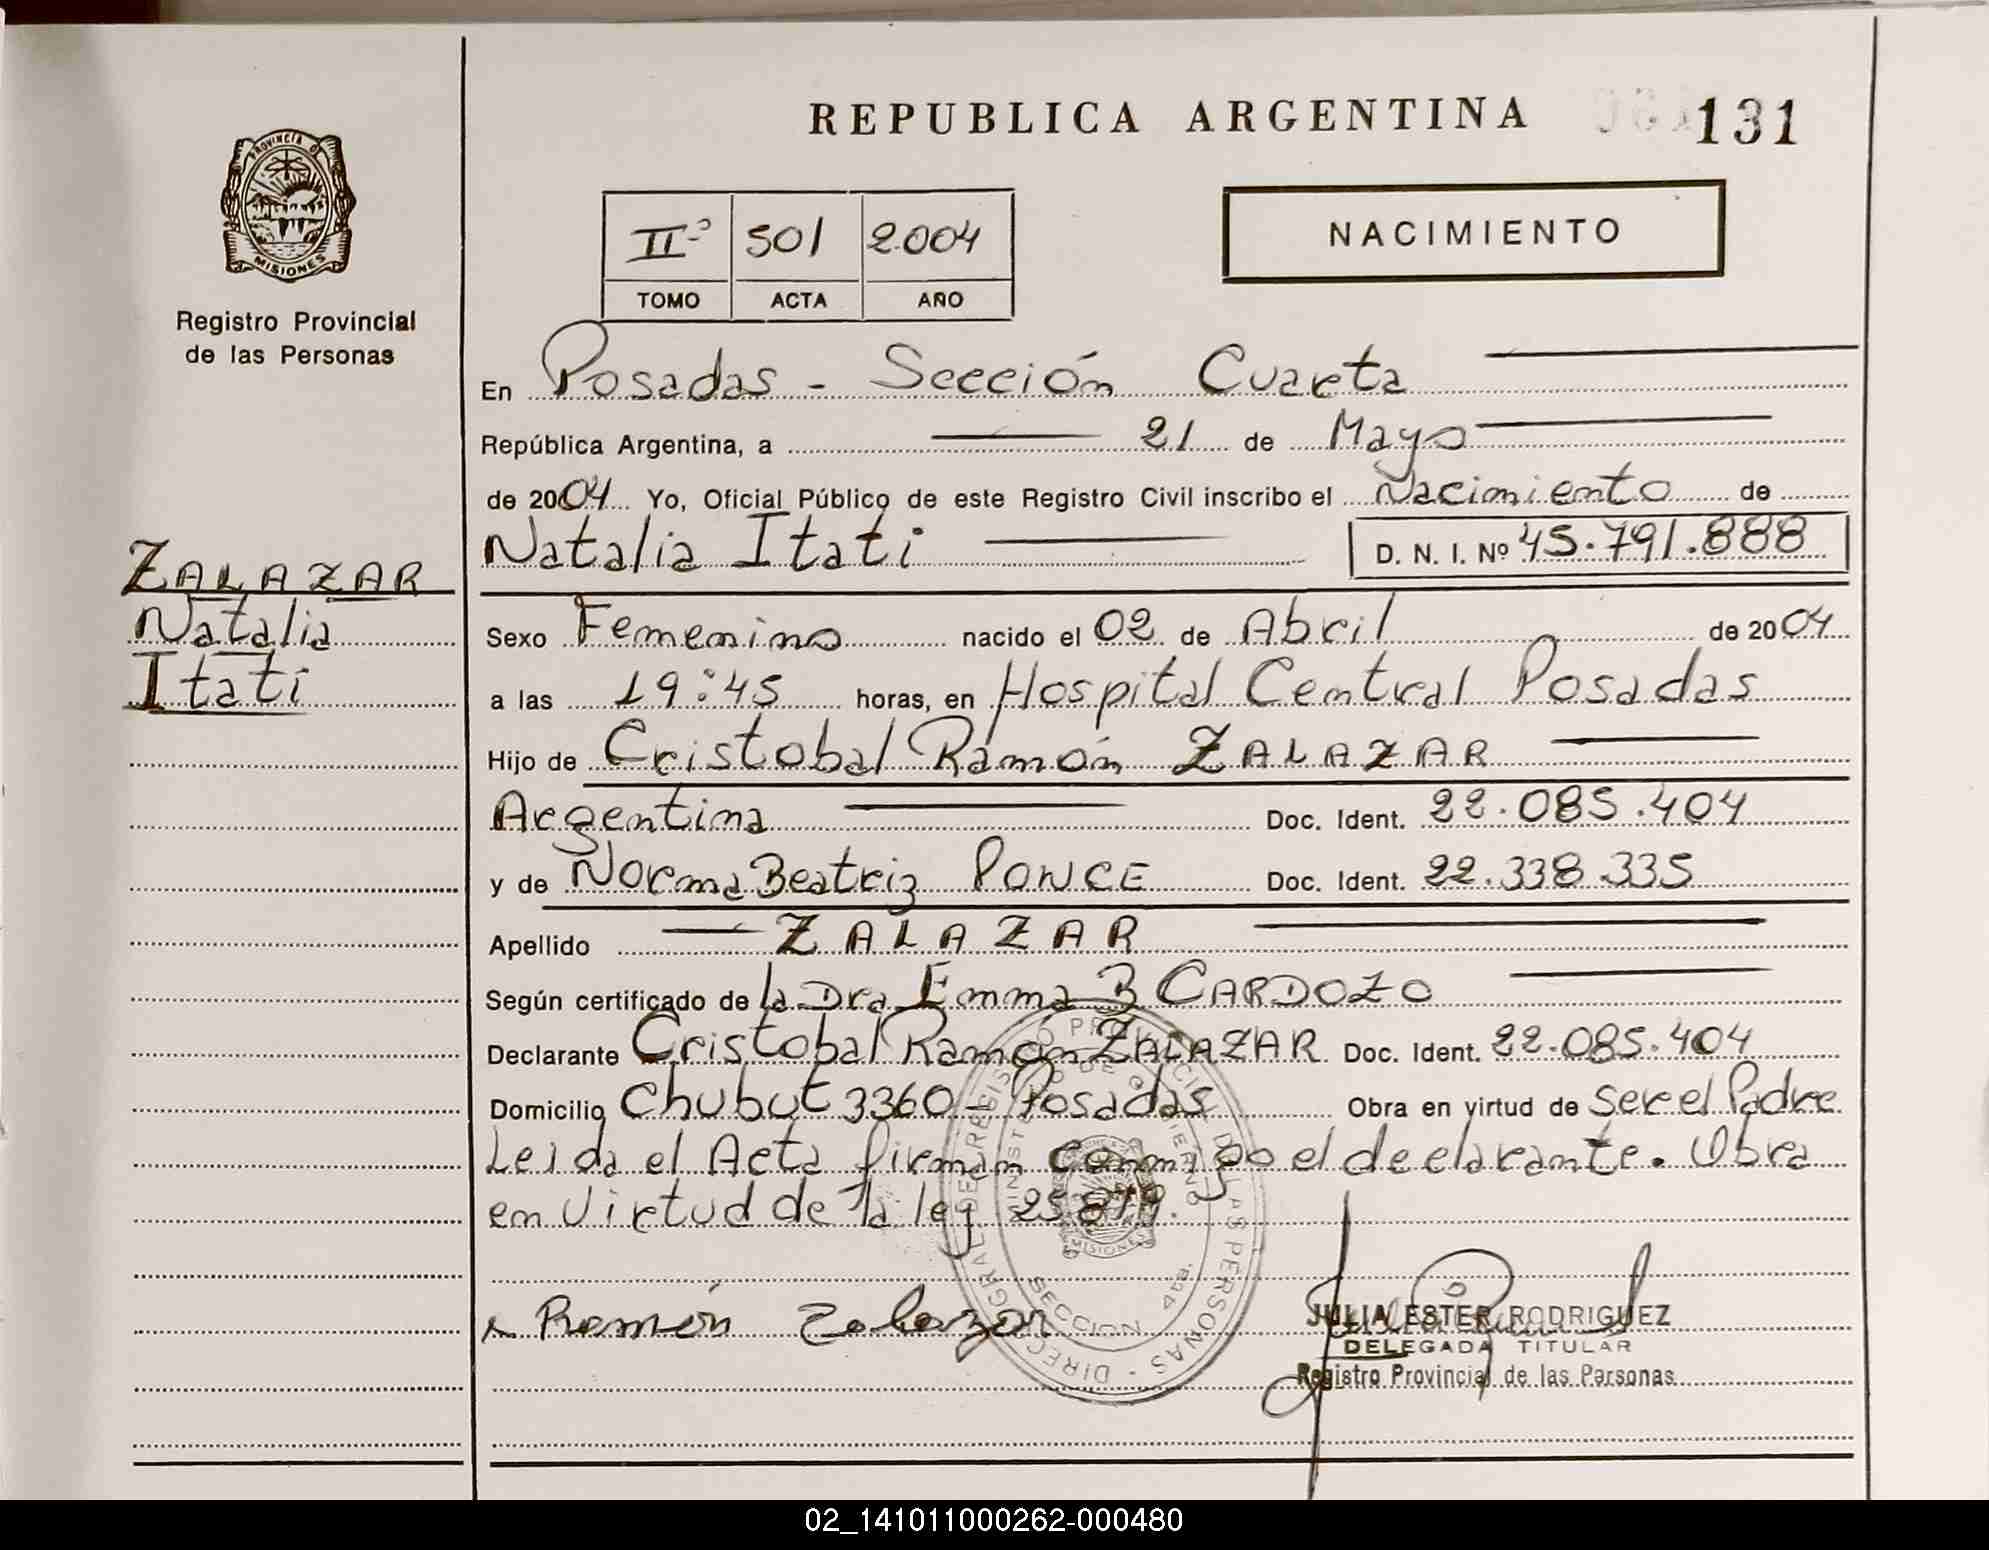 REPUBLICA ARGENTINA 131
PROVINCIA DE
MISIONES
Registro Provincial
de las Personas
IIº 501 2.004
TOMO ACTA AÑO
NACIMIENTO
En Posadas - Sección Cuarta
República Argentina, a 21 de Mayo
de 2004 Yo, Oficial Público de este Registro Civil inscribo el Nacimiento de
Natalia Itati D. N. I. Nº 45.791.888
ZALAZAR
Natalia
Itati
Sexo Femenino nacido el 02 de Abril de 2004
a las 19:45 horas, en Hospital Central Posadas
Hijo de Cristobal Ramón ZALAZAR
Argentina Doc. Ident. 22.085.404
y de Norma Beatriz PONCE Doc. Ident. 22.338.335
Apellido ZALAZAR
Según certificado de la Dra Emma B CARDOZO
Declarante Cristobal Ramón ZALAZAR Doc. Ident. 22.085.404
Domicilio Chubut 3360 - Posadas Obra en virtud de ser el Padre
Leida el Acta firman conmigo el declarante. Obra
en Virtud de la ley
DIRECC GRAL DE REGISTRO PROVINCIAL DE LAS PERSONAS
MINISTERIO DE GOBIERNO
MISIONES
SECCION 4ta.
x Ramón Zalazar
JULIA ESTER RODRIGUEZ
DELEGADA TITULAR
Registro Provincial de las Personas
02_141011000262-000480